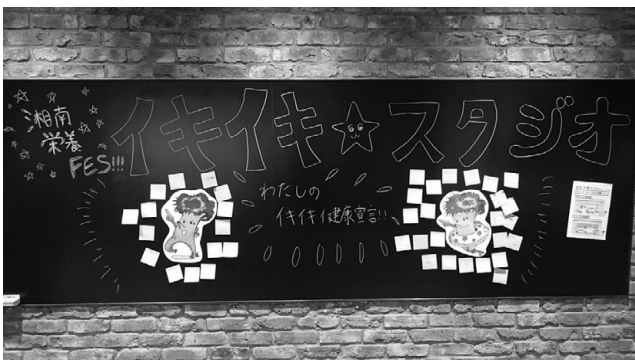 湘南
栄養
FES!!!
イキイキ☆スタジオ
わたしの
イキイキ健康宣言!!